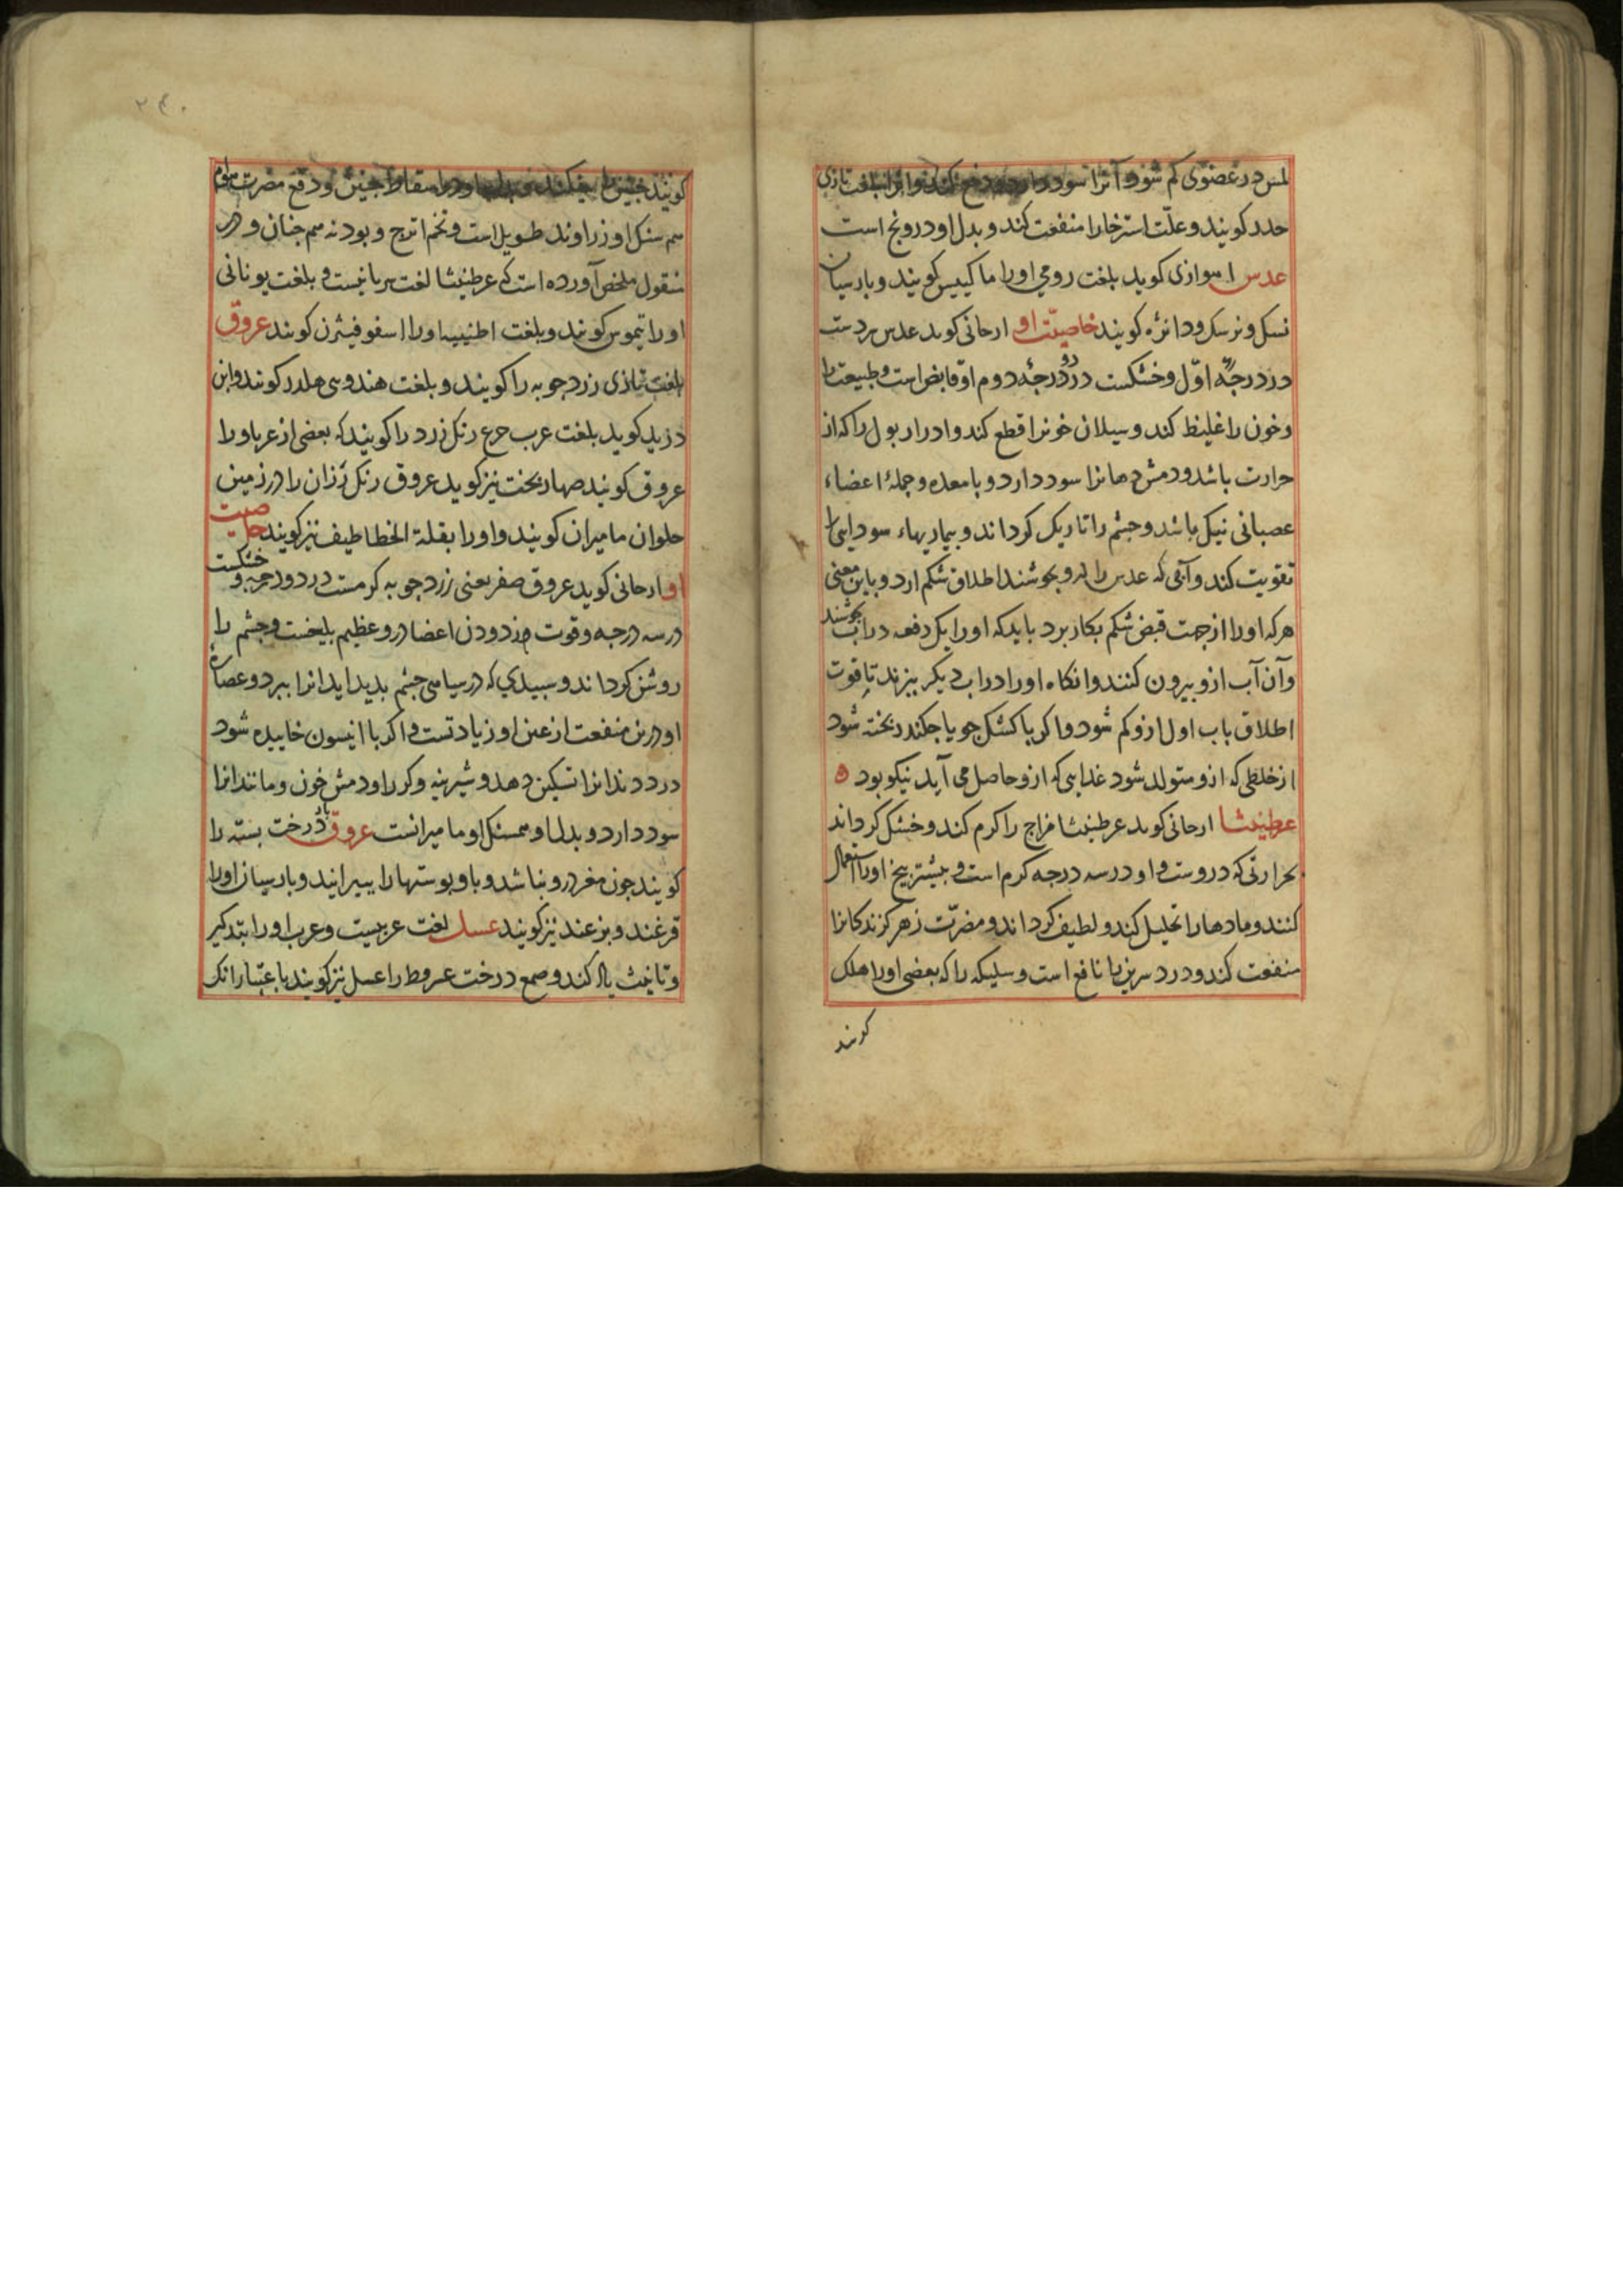 لمس در عضوی کم شود آنرا سود دارد
حدر کویند و علّت استرخا را منفعت کند و بدل او درونج است
عدس اموازی کوید بلغت رومی اورا ماکییس کویند و بارسیان
نسک و نرسک و دانژه کویند خاصیّت او ارحانی کوید عدس سردست
در درجهٔ اوّل و خشکست در درجهٔ دوم او قابض است و طبیعت را
و خون را غلیظ کند و سیلان خونرا قطع کند و ادرار بول را که از
حرارت باشد و دمش دهانرا سود دارد و با معده و جملهٔ اعضاء
عصبانی نیک باشد و چشم را تاریک کرداند و بیماریهاء سودایی را
تقویت کند و آبی که عدس را درو بجوشند اطلاق شکم ارد و باین معنی
هرکه اورا از جهت قبض شکم بکار برد باید که اورا یک دفعه دراب بجوشند
و آن آب ازو بیرون کنند و انکاه اورا دراب دیکر بپزند تا قوت
اطلاق باب اول ازو کم شود و اکر با کشک جو یا چکندر بخته شود
از خلطی که ازو متولد شود غدایی که ازو حاصل می آید نیکو بود ه
عطنیثا ارحانی کوید عرطنیثا مزاج را کرم کند و خشک کرداند
بحرارتی که دروست و او در سه درجه کرم است و بیشتر بیخ اورا استعمال
کنند و مادها را تحلیل کند و لطیف کرداند و مضرّت زهر کزندکانرا
منفعت کند و درد سرین را نافع است و سلیکه را که بعضی اورا هلک
کویند
کویند اسقاط جنین و دفع مضرت سموم
هم سنک او زراوند طویل است و تخم اترج و بودنه هم چنان و در
منقول ملخص آورده است که عرطنیثا لغت سریانیست و بلغت یونانی
اورا تیموس کویند و بلغت اطنییه اورا اسفوفیثرن کویند عروق
بلغت تازی زردجوبه را کویند و بلغت هندوی هلدر کویند و ابن
درید کوید بلغت عرب حرع رنک زرد را کویند که بعضی از عرب اورا
عروق کویند صهاربخت نیز کوید عروق رنک رزان را در زمین
حلوان مامیران کویند و اورا بقلة الخطاطیف نیز کویند خاصیت
او ارحانی کوید عروق صفر یعنی زردجوبه کرمست در دو درجه و خشکست
در سه درجه و قوت زدودن اعضا درو عظیم بلیغست و چشم را
روشن کرداند و سبیدی که در سیاهی چشم بدید اید انرا ببرد و عصارهٔ
او درین منفعت از عین او زیادتست و اکر با انیسون خاییده شود
درد دندانرا تسکین دهد و شیرینه و کر را و دمش خون و مانند انرا
سود دارد و بدل او همسنک او مامیرانست عروق باد درخت بسته را
کویند چون مغز درو نباشد و باو بوستها را ببیرایند و بارسیان اورا
قرغند و بزغند نیز کویند عسل لغت عربیست و عرب اورا بتذکیر
و تانیث یاد کند و صمغ درخت عرفط را عسل نیز کویند باعتبار انک